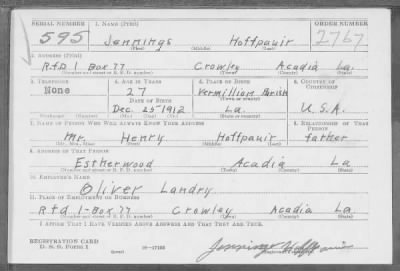 SERIAL NUMBER 1. NAME (Print) ORDER NUMBER
595 Jennings Hoffpauir 2767
(First) (Middle) (Last)
2. ADDRESS (Print)
Rfd 1 Box 77 Crowley Acadia La.
(Number and street or R. F. D. number) (Town) (County) (State)
3. TELEPHONE 4. AGE IN YEARS 5. PLACE OF BIRTH 6. COUNTRY OF CITIZENSHIP
None 27 Vermillion Parish
DATE OF BIRTH (Town or county)
Dec. 25 1912 La. U.S.A.
(Exchange) (Number) (Mo.) (Day) (Yr.) (State or country)
7. NAME OF PERSON WHO WILL ALWAYS KNOW YOUR ADDRESS 8. RELATIONSHIP OF THAT PERSON
Mr. Henry Hoffpauir father
(Mr., Mrs., Miss) (First) (Middle) (Last)
9. ADDRESS OF THAT PERSON
Estherwood Acadia La
(Number and street or R. F. D. number) (Town) (County) (State)
10. EMPLOYER'S NAME
Oliver Landry
11. PLACE OF EMPLOYMENT OR BUSINESS
Rfd 1-Box 77 Crowley Acadia La
(Number and street or R. F. D. number) (Town) (County) (State)
I AFFIRM THAT I HAVE VERIFIED ABOVE ANSWERS AND THAT THEY ARE TRUE.
REGISTRATION CARD
D. S. S. Form 1 (over) 16-17105 Jennings Hoffpauir